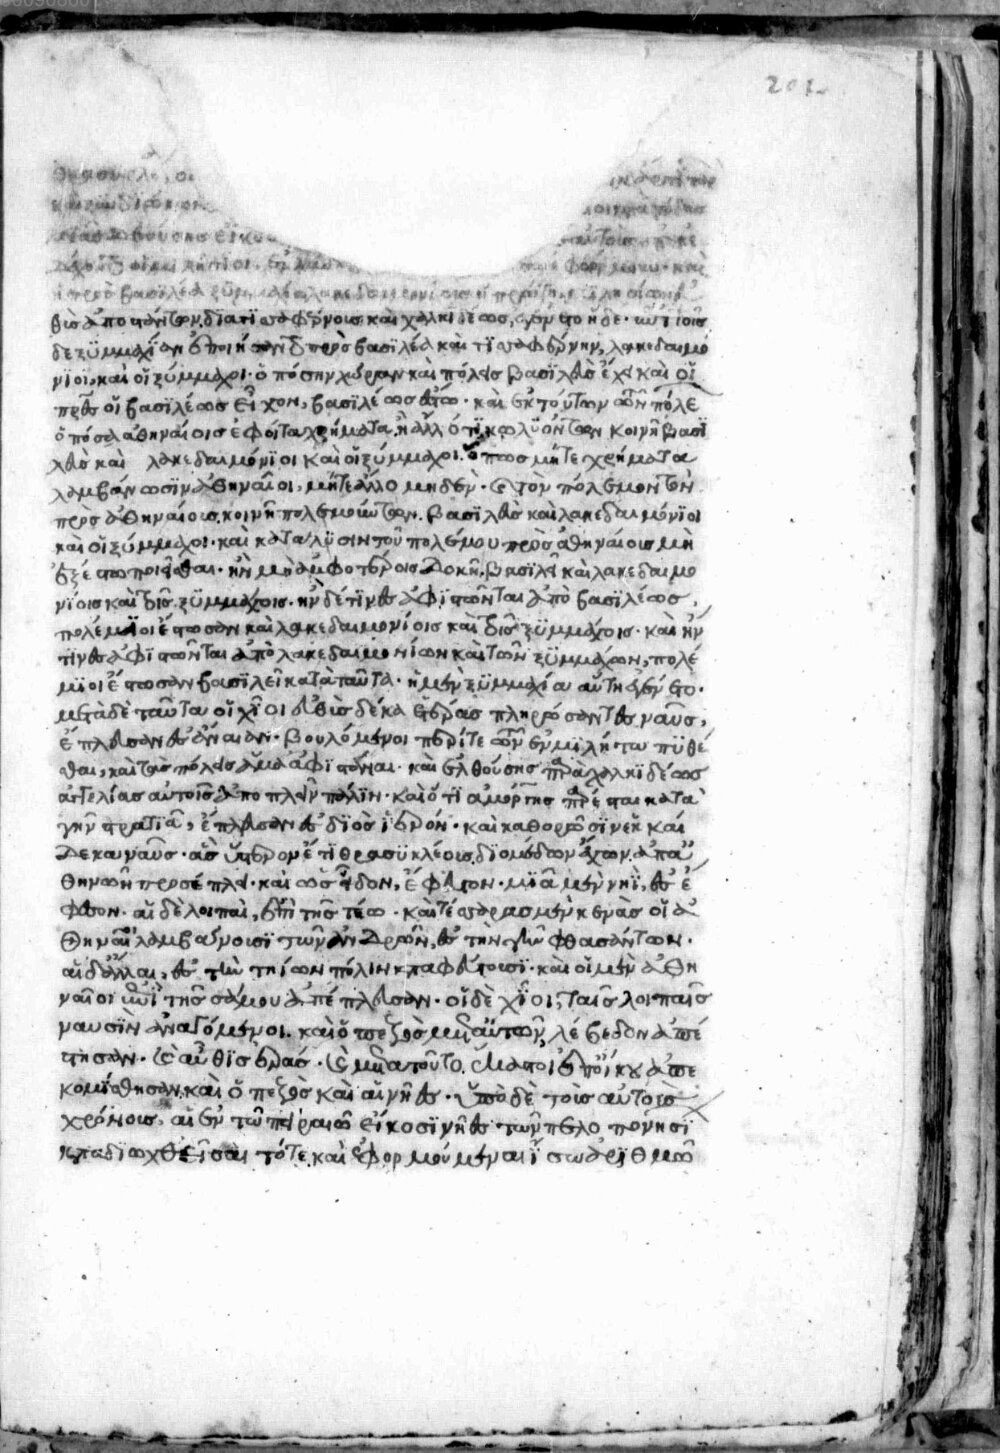 202
καὶ ξυνδιώκ
εἴκοσι
ἡ πρὸς βασιλέα ξυμμαχία λακεδαιμονίοις ἡ πρώτη
θὺς ἀπο πάντων, διὰ τισσαφέρνους καὶ χαλκιδέως, ἐγένετο ἥδε. ἐπὶ τοῖσ
δε ξυμμαχίαν ἐποιήσαντο πρὸς βασιλέα καὶ τισσαφέρνην, λακεδαιμό
νιοι, καὶ οἱ ξύμμαχοι. ὁπόσην χώραν καὶ πόλεις βασιλεὺς ἔχει καὶ οἱ
πρὲς οἱ βασιλέως εἶχον, βασιλέως ἔστω. καὶ ἐκ τούτων τῶν πόλε
ὁπόσα ἀθηναίοις ἐφοίτα χρήματα, ἢ ἄλλό τι, κωλυόντων κοινῇ βασι
λεὺς καὶ λακεδαιμόνιοι καὶ οἱ ξύμμαχοι. ὅπως μήτε χρήματα
λαμβάνωσιν ἀθηναῖοι, μήτε ἄλλο μηδέν. καὶ τον πόλεμον τὸν
πρὸς ἀθηναίους, κοινῇ πολεμούντων. βασιλεὺς καὶ λακεδαιμόνιοι
καὶ οἱ ξύμμαχοι. καὶ κατάλυσιν τοῦ πολέμου πρὸς ἀθηναίους μὴ
ἐξέστω ποιεῖσθαι. ἢν μὴ ἀμφοτέροις δοκῇ, βασιλεῖ καὶ λακεδαιμο
νίοις καὶ τοῖς ξυμμάχοις. ἢν δέ τινες ἀφιστῶνται ἀπὸ βασιλέως,
πολέμιοι ἔστωσαν καὶ λακεδαιμονίοις καὶ τοῖς ξυμμάχοις. καὶ ἤν
τινες ἀφιστῶνται ἀπὸ λακεδαιμονίων καὶ τῶν ξυμμάχων, πολέ
μιοι ἔστωσαν βασιλεῖ κατὰ ταῦτα. ἡ μὲν ξυμμαχία αὕτη ἐγένετο.
μετὰ δὲ ταῦτα οἱ χῖοι εὐθὺς δέκα ἑτέρας πληρώσαντες ναῦς,
ἔπλευσαν ἐς ἄναιαν. βουλόμενοι περί τε τῶν ἐν μιλήτω πυθέ
σθαι, καὶ τὰς πόλεις ἅμα ἀφιστάναι. καὶ ἐλθούσης παρὰ χαλκιδέως
ἀγγελίας αὐτοῖς ἀποπλεῖν πάλιν. καὶ ὅτι ἀμόργης παρέσται κατὰ
γῆν στρατιᾶ, ἔπλευσαν ἐς διὸς ἱερόν. καὶ καθορῶσιν ἑκκαί
δεκα ναῦς. ἃς ὕστερον ἔτι θρασυκλέους διομέδων ἔχων ἀπα
θηνῶν προσέπλει. καὶ ὡς εἶδον, ἔφευγον. μιᾶ μὲν νηῒ, ἐς ἔ
φεσον. αἱ δὲ λοιπαὶ, ἐπὶ τῆς τέω. καὶ τέσσαρας μὲν κενὰς οἱ ἀ
θηναῖοι λαμβάνουσι τῶν ἀνδρῶν, ἐς τὴν γῆν φθασάντων.
αἱ δἄλλαι, ἐς τὴν τηίων πόλιν καταφεύγουσι. καὶ οἱ μὲν ἀθη
ναῖοι ἐπὶ τῆς σάμου ἀπέπλευσαν. οἱ δὲ χῖοι, ταῖς λοιπαῖς
ναυσὶν ἀναγόμενοι. καὶ ὁ πεζὸς μετ αὐτῶν, λέβεδον ἀπέ
στησαν. καὶ αὖθις ἐράς. καὶ μετὰ τοῦτο, ἕκαστοι ἐπ οἴκου ἀπε
κομίσθησαν, καὶ ὁ πεζὸς καὶ αἱ νῆες. ὑπὸ δὲ τοὺς αὐτοὺς
χρόνους, αἱ ἐν τῶ πειραιῶ εἴκοσι νῆες τῶν πελοποννησί
καταδιωχθεῖσαι τότε καὶ ἐφορμούμεναι ἴσω ἀριθμῶ